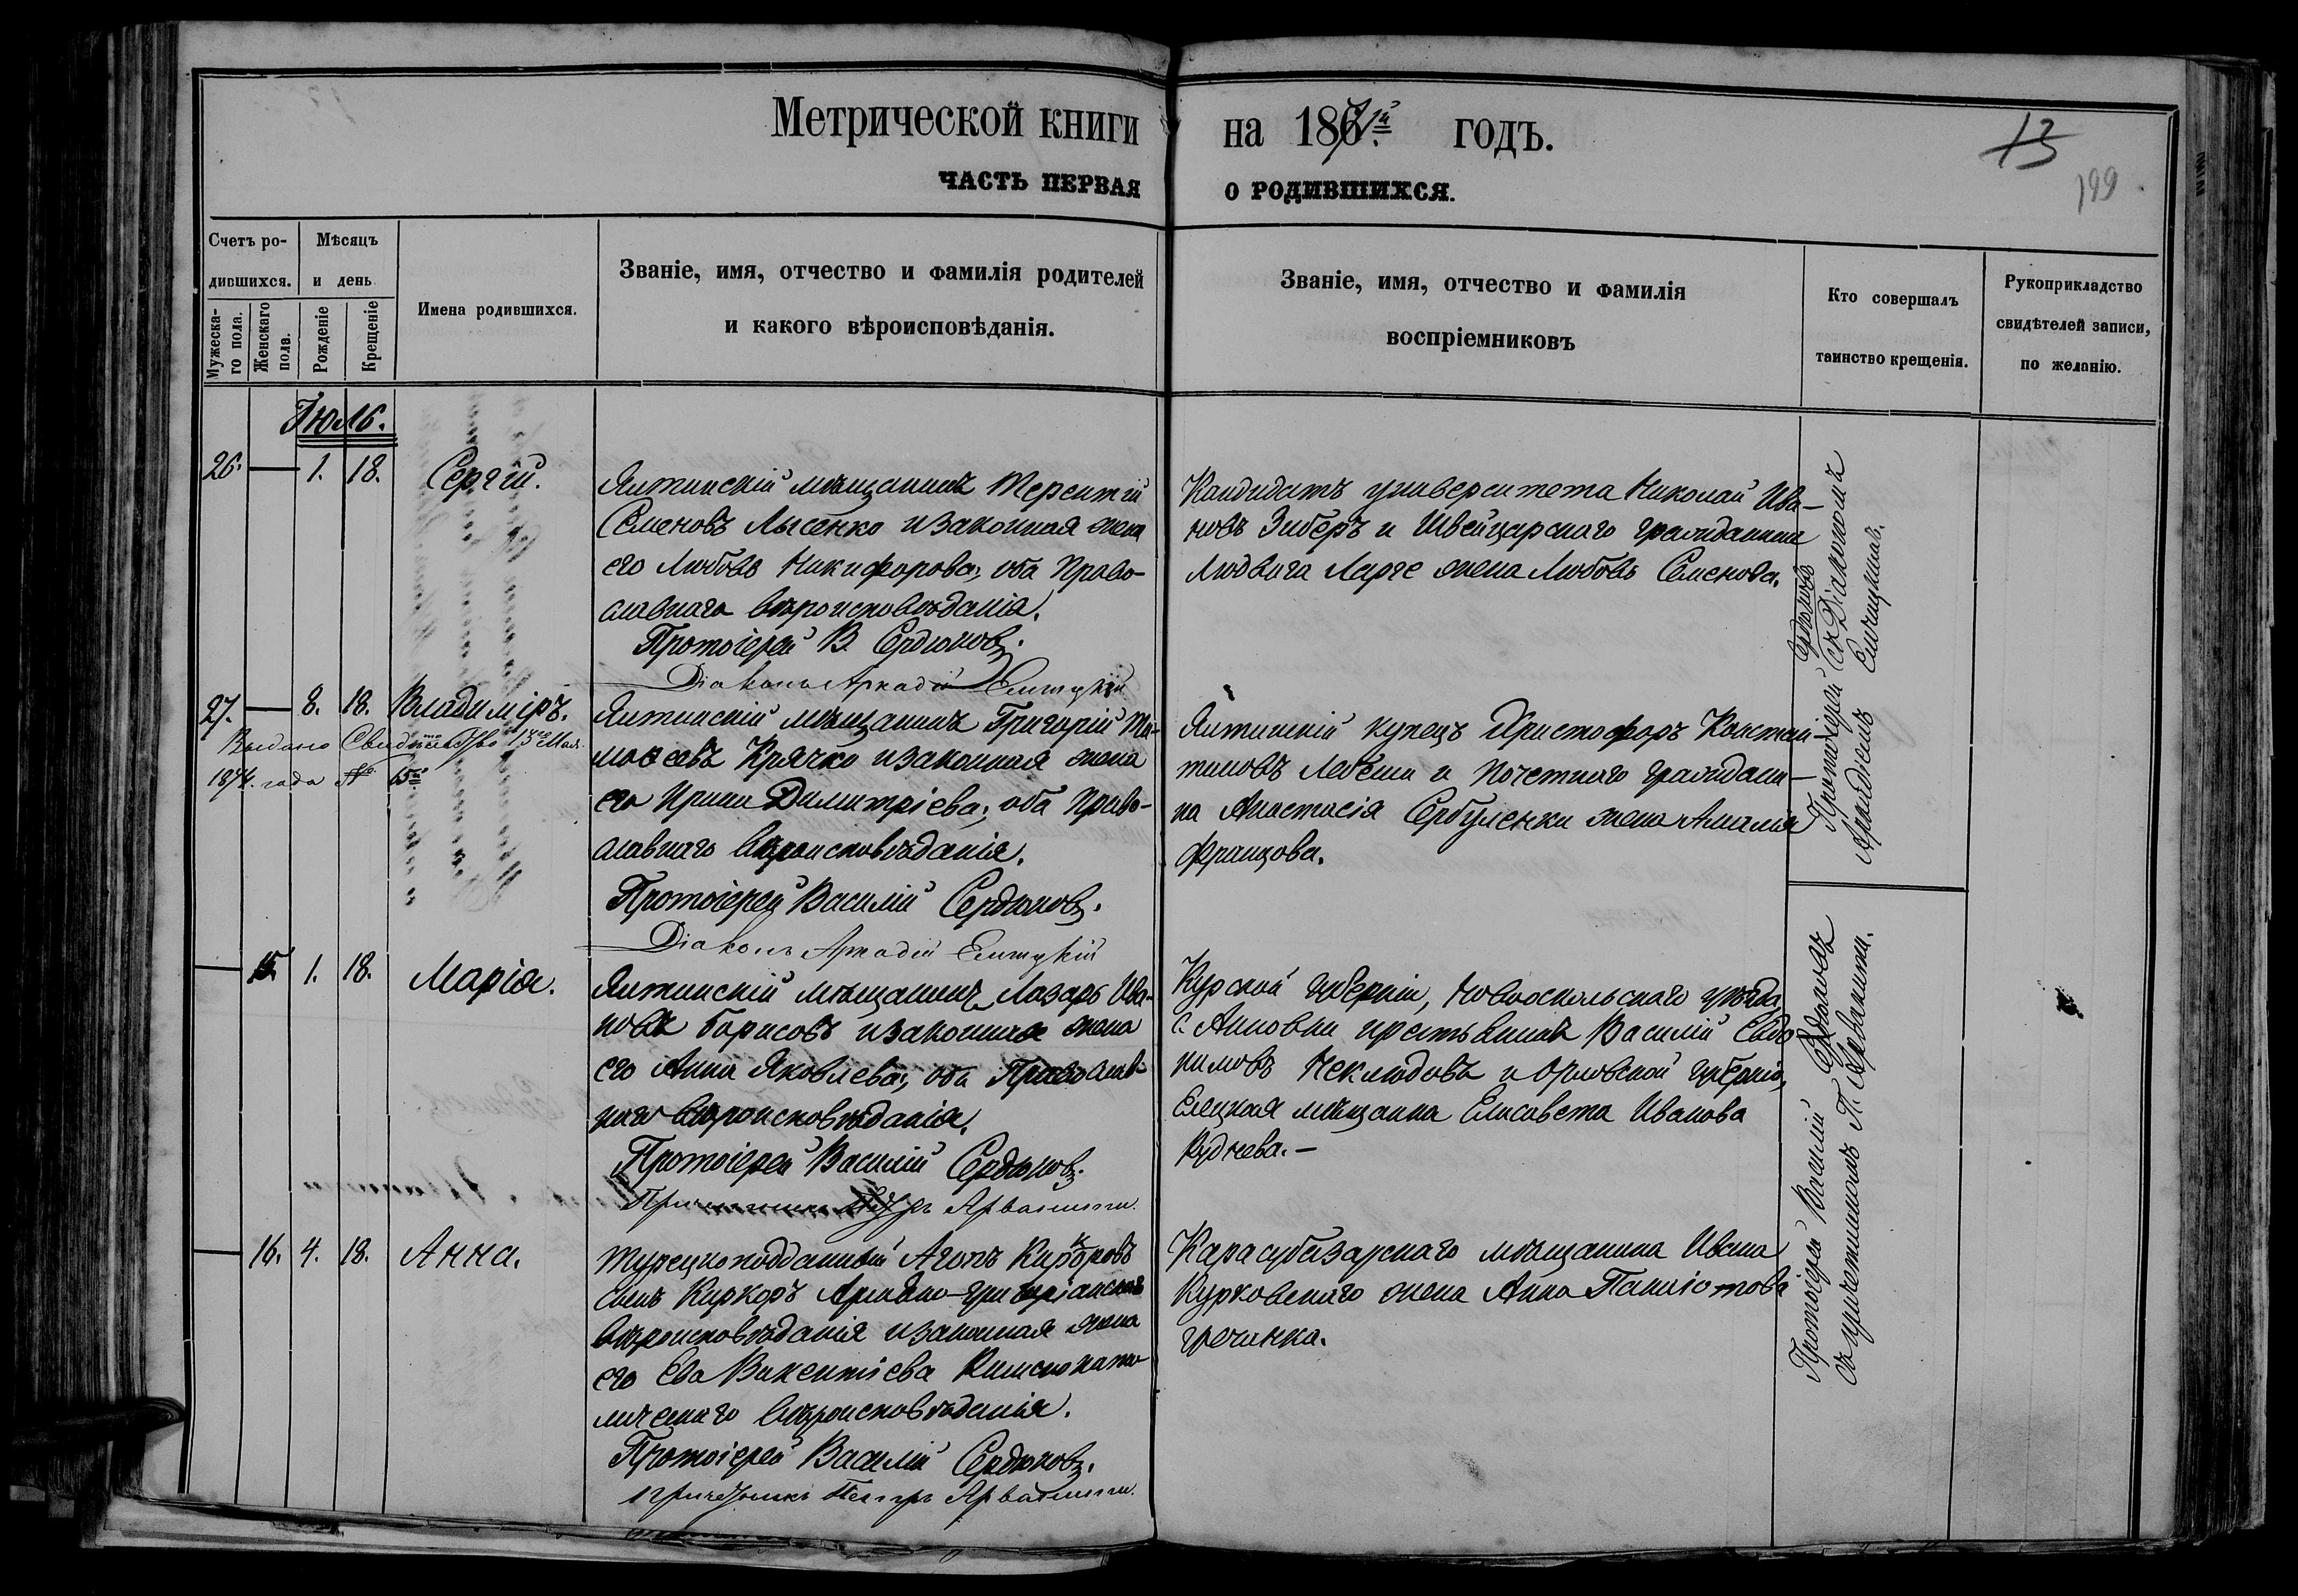 Метрической книги на 1871й годъ.
ЧАСТЬ ПЕРВАЯ О РОДИВШИХСЯ.
13
199
Счетъ ро-
дившихся.
Мѣсяцъ
и день
Мужеска-
го пола.
Женскаго
пола.
Рожденіе
Крещеніе
Имена родившихся.
Званіе, имя, отчество и фамилія родителей
и какого вѣроисповѣданія.
Званіе, имя, отчество и фамилія
воспріемниковъ
Кто совершалъ
таинство крещенія.
Рукоприкладство
свидѣтелей записи,
по желанію.
Іюль.
26. — 1. 18. Сергій.
Ялтинскій мѣщанинъ Терентій
Семеновъ Лысенко и законная жена
его Любовь Никифорова; оба Право-
славнаго вѣроисповѣданія.
Протоіерей В. Сердюковъ.
Діаконъ Аркадій Ельчукій
Кандидатъ университета Николай Ива-
новъ Зиберъ и Швейцарскаго гражданина
Людвига Ларге жена Любовь Семенова.
27. — 8. 18. Владиміръ.
Выдано Свидѣтельство 13го Мая
1874. года № 65й
Ялтинскій мѣщанинъ Григорій Ти-
моѳеевъ Крячко и законная жена
его Ирина Димитріева; оба Право-
славнаго вѣроисповѣданія.
Протоіерей Василій Сердюковъ.
Діаконъ Аркадій
Ялтинскій купецъ Христофоръ Констан-
тиновъ и Почетнаго граждани-
на Анастасія Сербуленки жена Амалія
Францова.
Протоіерей Сердюковъ
съ Діакономъ
Аркадіемъ
— 15. 1. 18. Марія.
Ялтинскій мѣщанинъ Лазарь Ива-
новъ Борисовъ и законная жена
его Анна Яковлева; оба Православ-
наго вѣроисповѣданія.
Протоіерей Василій Сердюковъ.
Причетникъ Петръ
Курской губерніи, Новооскольскаго уѣзда
с. крестьянинъ Василій Евдо-
кимовъ Неклюдовъ и Орловской губерніи,
Елецкая мѣщанка Елисавета Иванова
— 16. 4. 18. Анна.
Турецкоподданный Агопъ Киркоровъ
сынъ Киркоръ Армяно-григоріанскаго
вѣроисповѣданія и законная жена
его Ева Викентіева Римско като-
лическаго вѣроисповѣданія.
Протоіерей Василій Сердюковъ.
Причетникъ Петръ
Карасубазарскаго мѣщанина Ивана
Курковскаго жена Анна Панаіотова
гречанка.
Протоіерей Василій Сердюковъ
съ причетникомъ П.